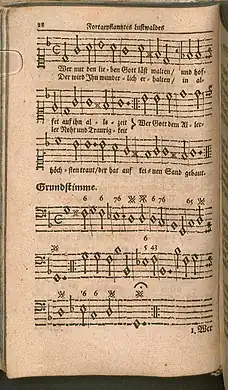 28 Fortgepflantztes Lustwaldes
Wer nur den lie- ben Gott läst walten/ und hof-
Der wird Jhn wunder- lich er- halten/ in al-
fet auf ihn al- le- zeit Wer Gott dem Al- ler-
ler Noht und Traurig- keit
höch- sten traut/ der hat auf kei- nen Sand gebaut.
Grundstimme.
6 6 76 6 76 65
6
5 43
6 6
1. Wer